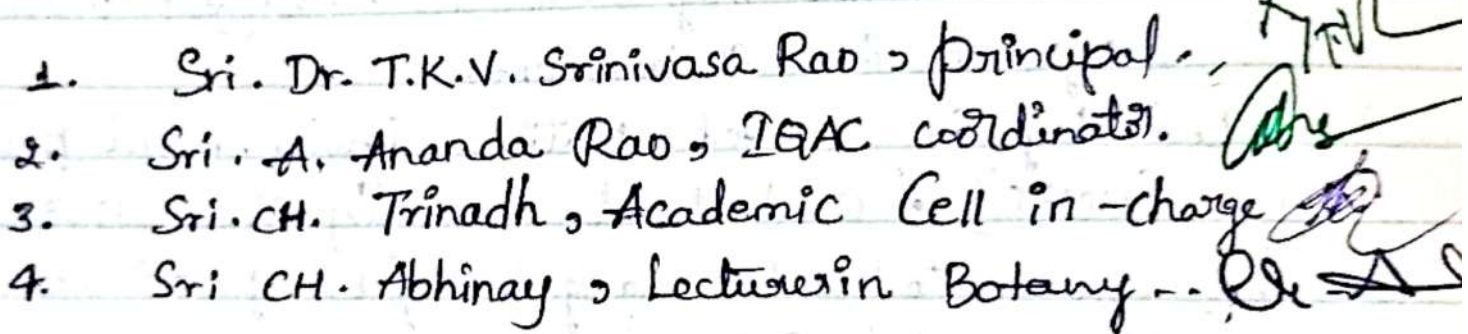 1. Sri. Dr. T.K.V. Srinivasa Rao, principal.,
2. Sri. A. Ananda Rao, IQAC coordinator.
3. Sri. CH. Trinadh, Academic Cell in-charge
4. Sri CH. Abhinay, Lecturer in Botany..